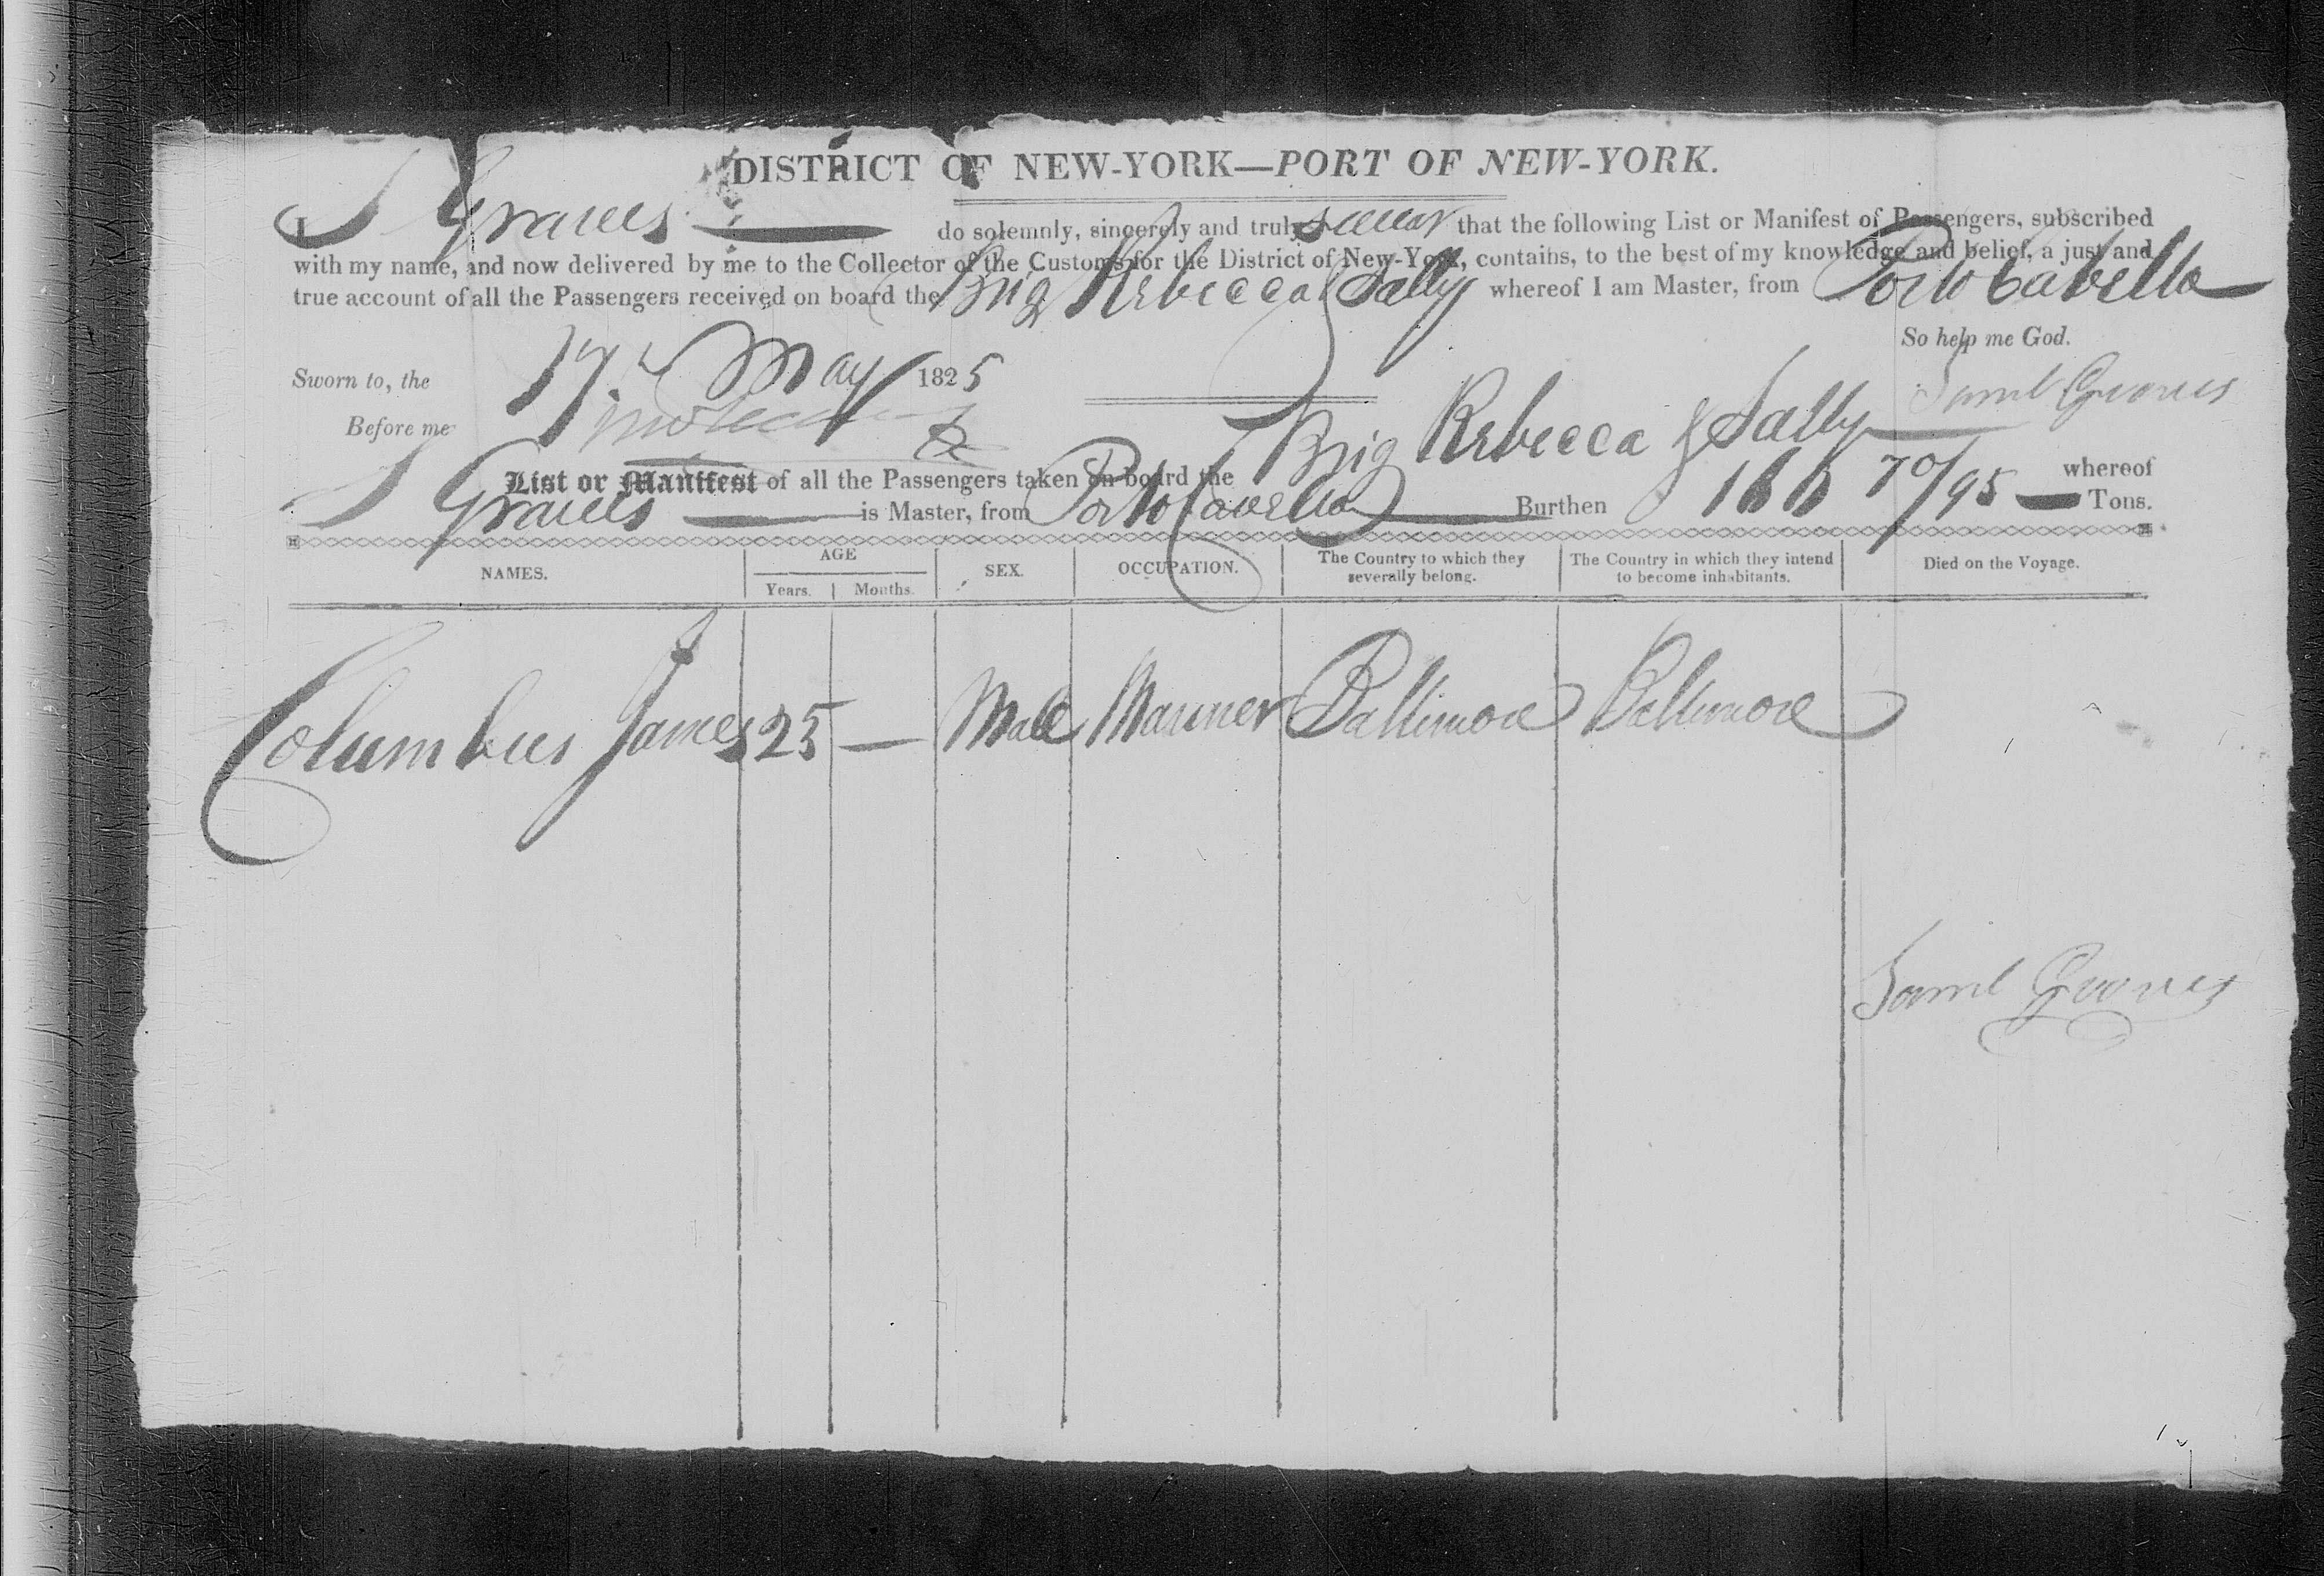 DISTRICT OF NEW-YORK—PORT OF NEW-YORK.
I S Graves do solemnly, sincerely and truly swear that the following List or Manifest of Passengers, subscribed
with my name, and now delivered by me to the Collector of the Customs for the District of New-York, contains, to the best of my knowledge and belief, a just and
true account of all the Passengers received on board the Brig Rebecca & Sally whereof I am Master, from Porto Cabello
So help me God.
Sworn to, the 17th May 1825
Saml Graves
Before me
List or Manifest of all the Passengers taken on board the Brig Rebecca & Sally whereof
S Graves is Master, from Porto Cavello Burthen 166 70/95 Tons.
NAMES. AGE Years. Months. SEX. OCCUPATION. The Country to which they severally belong. The Country in which they intend to become inhabitants. Died on the Voyage.
Columbus James 25 — Male Mariner Baltimore Baltimore
Saml Graves